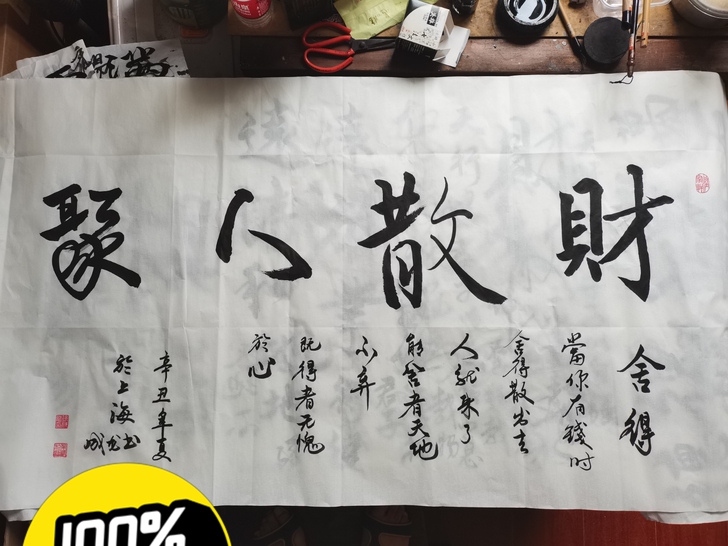 財散人聚
舍得
當你有錢時
舍得散出去
人就来了
能舍者天地
不弃
既得者无愧
於心
辛丑年夏
於上海
100%